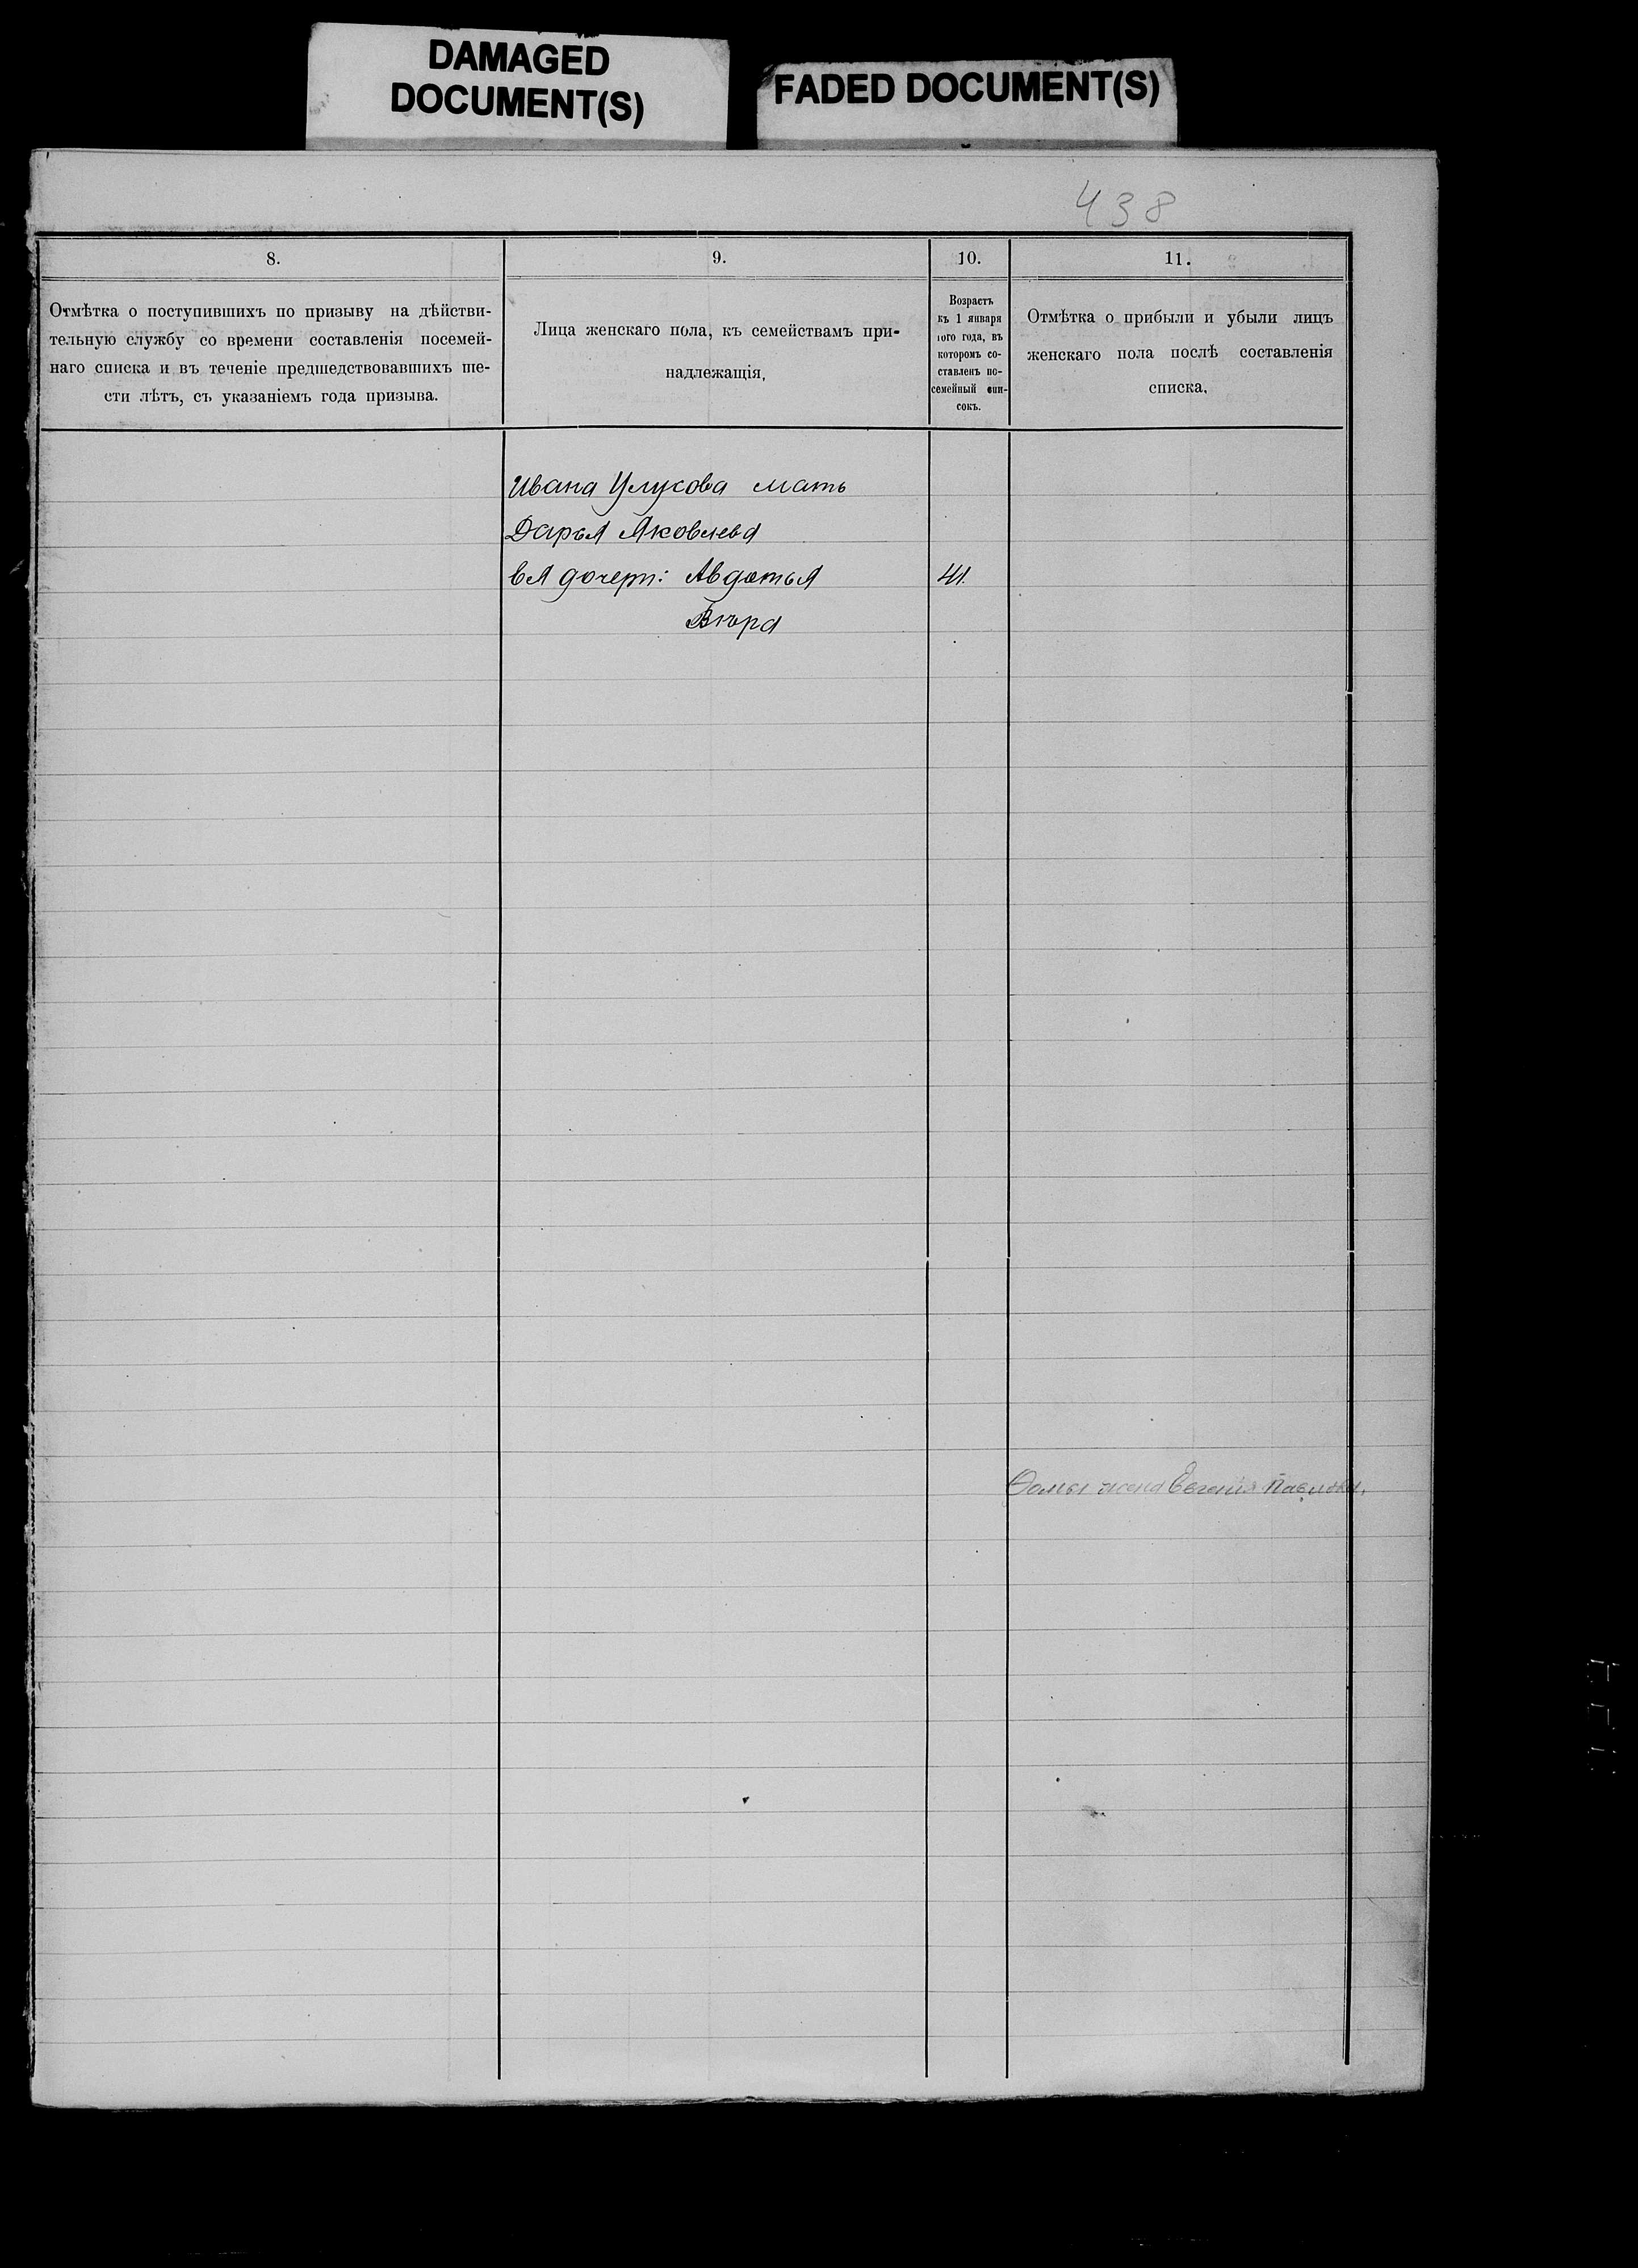 DAMAGED
DOCUMENT(S)
FADED DOCUMENT(S)
438
8.
9.
10.
11.
Отмѣтка о поступившихъ по призыву на дѣйстви-
тельную службу со времени составленія посемей-
наго списка и въ теченіе предшедствовавшихъ ше-
сти лѣтъ, съ указаніемъ года призыва.
Лица женскаго пола, къ семействамъ при-
надлежащія,
Возрастъ
къ 1 января
того года, въ
которомъ со-
ставленъ по-
семейный спи-
сокъ.
Отмѣтка о прибыли и убыли лицъ
женскаго пола послѣ составленія
списка.
Ивана мать
Дарья Яковлева
ея дочери: Авдотья 41.
Вѣра
Ѳомы жена Евгенія Павлова.